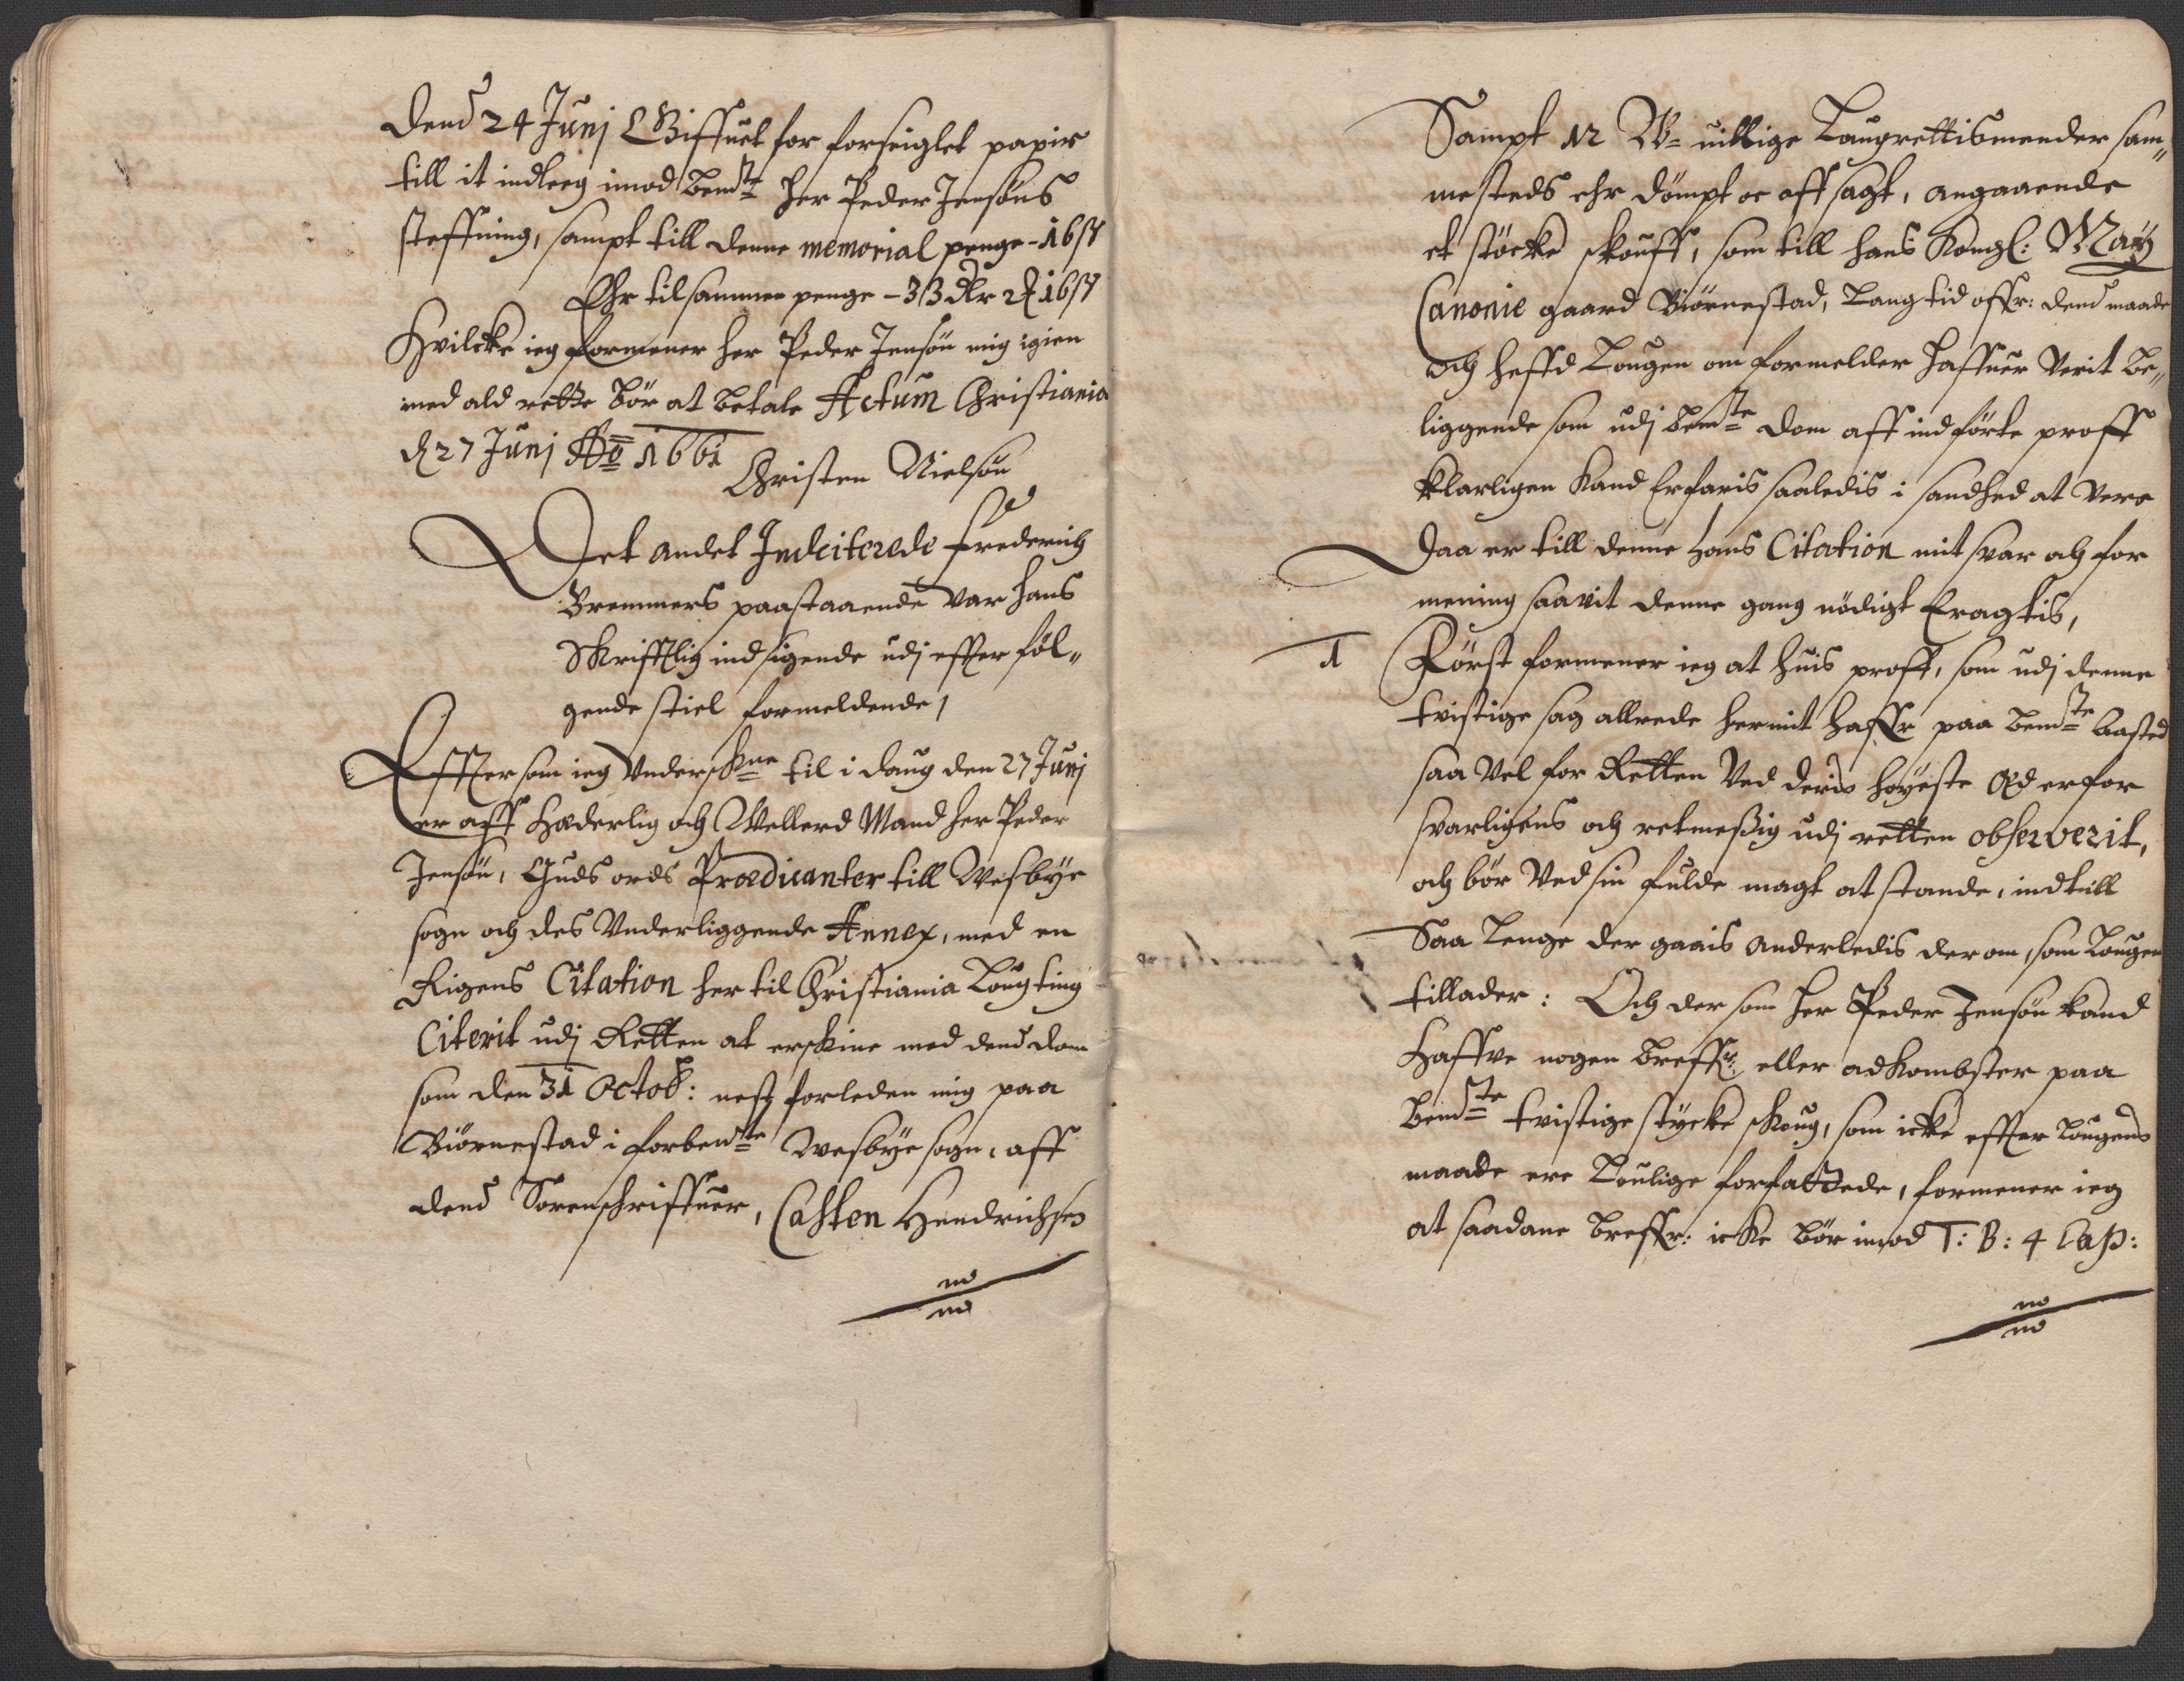 Dend 24 Junj Giffuet for forseiglet papir
till it indleeg imod bemte her Peder Jensøns
steffning, sampt till denne memorial penge - 16 sh
Ehr tilsammen penge - 33 dlr 2 16 sh
Hvilcke ieg formener her Peder Jensøn mig igien
med ald rette bør at betale Actum Christiania
d 27 Junj Ao 1661
Christen Nielsøn
Det andet Indciterede Frederich
Bremmers paastaaende var hans
Skrifftlig indsigende udj effter føl„
gende stiel formeldende,
Effter som ieg Underskne til i daug den 27 Junj
er aff Hæderlig och Wellerd Mand her Peder
Jensøn, Guds ords Prædicanter till Wesbye
sogn och des Underliggende Annex, med en
Rigens Citation her til Christiania Lougting
Citerit udj Retten at erskine med dend dom
som den 31 Octob: nest forleden mig paa
Biørnestad i forbemte Wesbye sogn, aff
dend Sorenschriffuer, Casten Hendrichsen
no
no
Sampt 12 W= uillige Laugrettismender sam„
mesteds ehr dømpt oc affsagt, angaaende
et støcke skouff, som till hans Kongl: May
Canonie gaard Biørnestad, Lang tid offr: dend maade
och heffd Lougen om formelder haffuer verit be„
liggende som udj bemte dom aff indførte proff
klarligen kand Erfaris saaledis i sandhed at vere
Daa er till denne hans Citation mit svar och for
mening saavit denne gang nødigt Eragtis,
1 Først formener ieg at huis proff, som udj denne
tvistige sag allrede hermit haffr paa bemte Aasted
saa vel for Retten Ved deris høyeste Æd erfor
svarligens och retmessig udj retten observerit,
och bør Ved sin fulde magt at stande, indtill
Saa lenge der gaais anderledis der om, som Lougen
tillader: Och der som her Peder Jensøn kand
Haffve nogen breffr: eller adkombster paa
bemte tvistige stycke skoug, som icke effter Lougens
maade ere Loulige forfattede, formener ieg
at saadane breffr: icke bør imod T: B: 4 Cap:
no
no